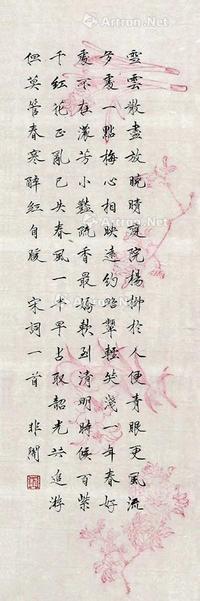 雪雲散盡放曉晴庭院楊柳於人便青眼更風流
多處一點梅心相映遠約畧顰輕笑淺一年春好
處不在濃芳小豔疏香最嬌軟到清明時候百紫
千紅花正亂已失春風一半早占取韶光共追游
但莫管春寒醉紅自暖 宋詞一首 非閑
Artron.Net